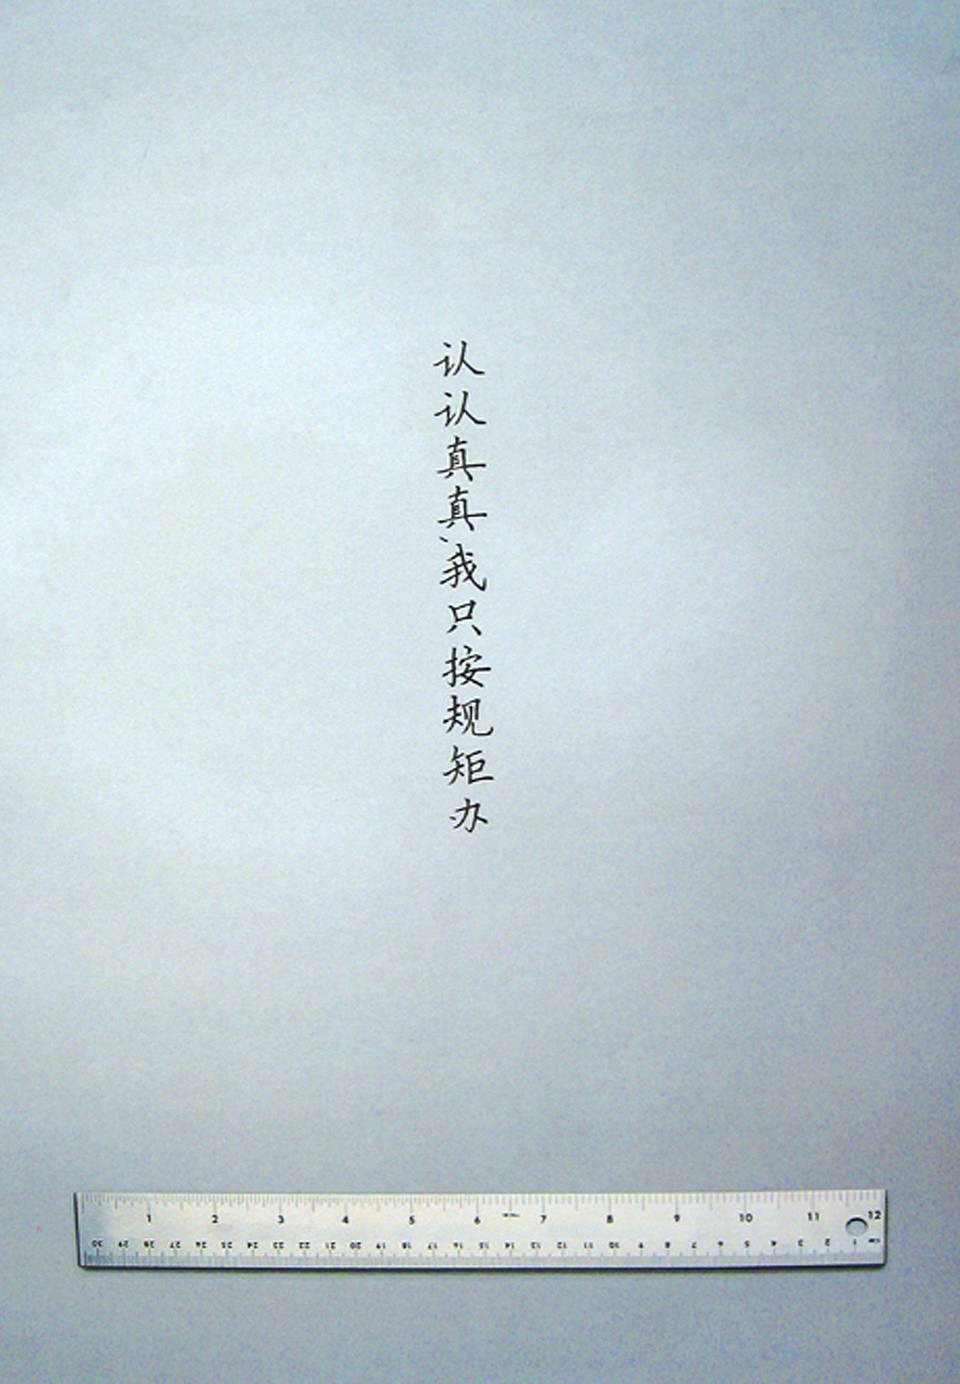 认认真真、我只按规矩办
1 2 3 4 5 6 7 8 9 10 11 12
30 29 28 27 26 25 24 23 22 21 20 19 18 17 16 15 14 13 12 11 10 9 8 7 6 5 4 3 2 1 CM